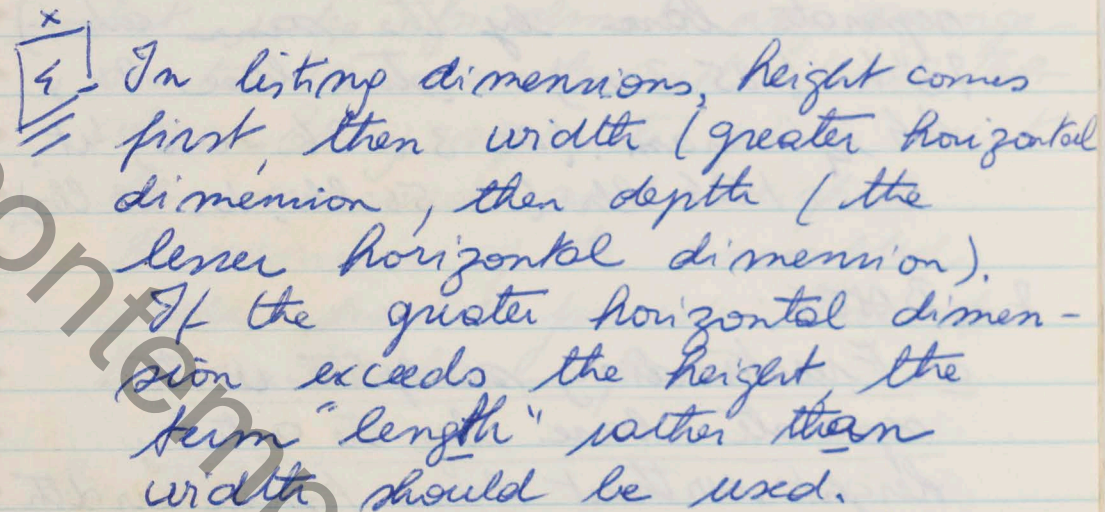 x
4 In listing dimensions, height comes
first, then width (greater horizontal
dimension, then depth (the
lesser horizontal dimension).
If the greater horizontal dimen-
sion exceeds the height, the
term "length" rather than
width should be used.
ontemp